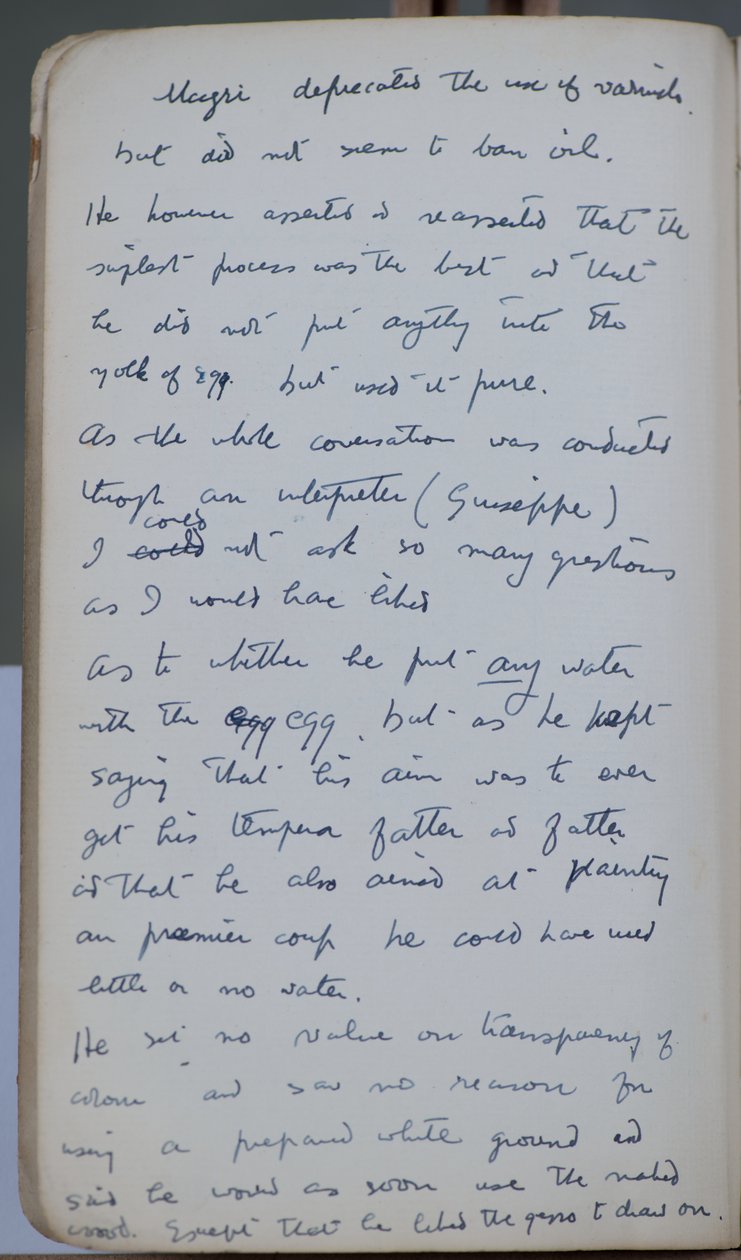 Magri deprecated the use of varnish.
but did not seem to ban oil.
He however asserted & reasserted that the
simplest process was the best & that
he did not put anything into the
yolk of egg. but used it pure.
As the whole conversation was conducted
through an interpreter (Guiseppe)
could
I could not ask so many questions
as I would have liked
As to whether he put any water
with the egg egg, but as he kept
saying that his aim was to ever
get his tempera fatter & fatter
& that he also aimed at painting
au premier coup he could have used
little or no water.
He set no value on transparency of
colour and saw no reason for
using a prepared white ground and
said he would as soon use the naked
wood. Except that he liked the gesso to draw on.